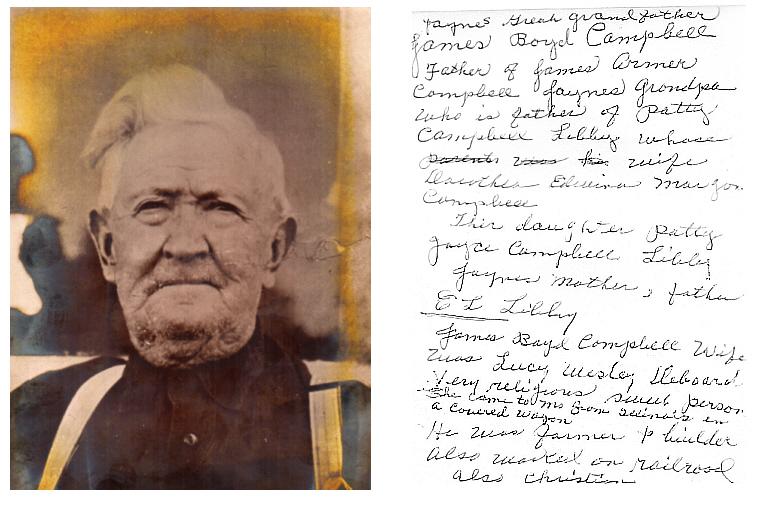 Jaynes Great grandfather
James Boyd Campbell
Father of James Armer
Campbell Jaynes Grandpa
who is father of Patty
Campbell Libby whose
parents was his wife
Dorothea Edwina
Campbell
Their daughter Patty
Joyce Campbell Libby
Jaynes Mother, father
E L Libby
James Boyd Campbell Wife
was Lucy Wesley
Very religious sweet person
She came to Mo from Illinois in
a covered wagon
He was farmer & builder
also worked on railroad
also christian